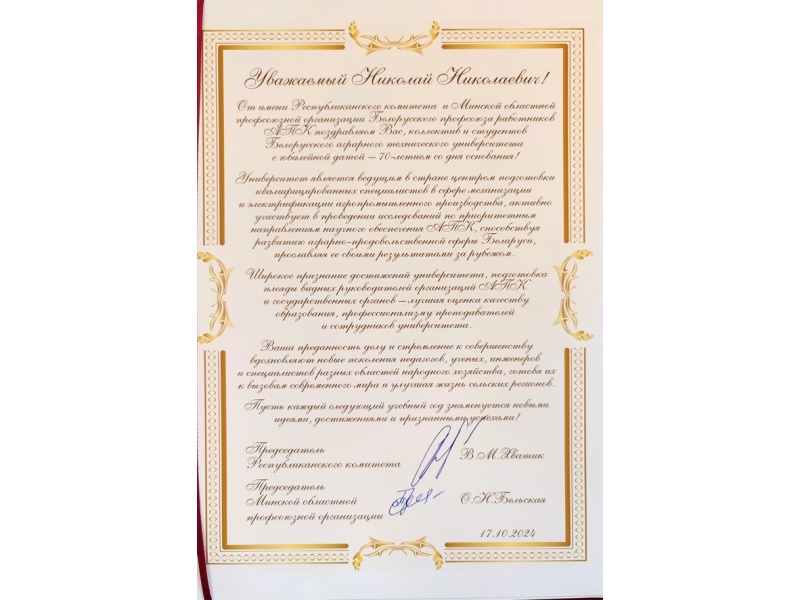 Уважаемый Николай Николаевич!
От имени Республиканского комитета и Минской областной
профсоюзной организации Белорусского профсоюза работников
АПК поздравляем Вас, коллектив и студентов
Белорусского аграрного технического университета
с юбилейной датой – 70-летием со дня основания!
Университет является ведущим в стране центром подготовки
квалифицированных специалистов в сфере механизации
и электрификации агропромышленного производства, активно
участвует в проведении исследований по приоритетным
направлениям научного обеспечения АПК, способствуя
развитию аграрно-продовольственной сферы Беларуси,
прославляя ее своими результатами за рубежом.
Широкое признание достижений университета, подготовка
плеяды видных руководителей организаций АПК
и государственных органов – лучшая оценка качеству
образования, профессионализму преподавателей
и сотрудников университета.
Ваша преданность делу и стремление к совершенству
вдохновляют новые поколения педагогов, ученых, инженеров
и специалистов разных областей народного хозяйства, готовя их
к вызовам современного мира и улучшая жизнь сельских регионов.
Пусть каждый следующий учебный год знаменуется новыми
идеями, достижениями и признанными успехами!
Председатель
Республиканского комитета В.М.Хватик
Председатель
Минской областной О.Н.Бельская
профсоюзной организации
17.10.2024